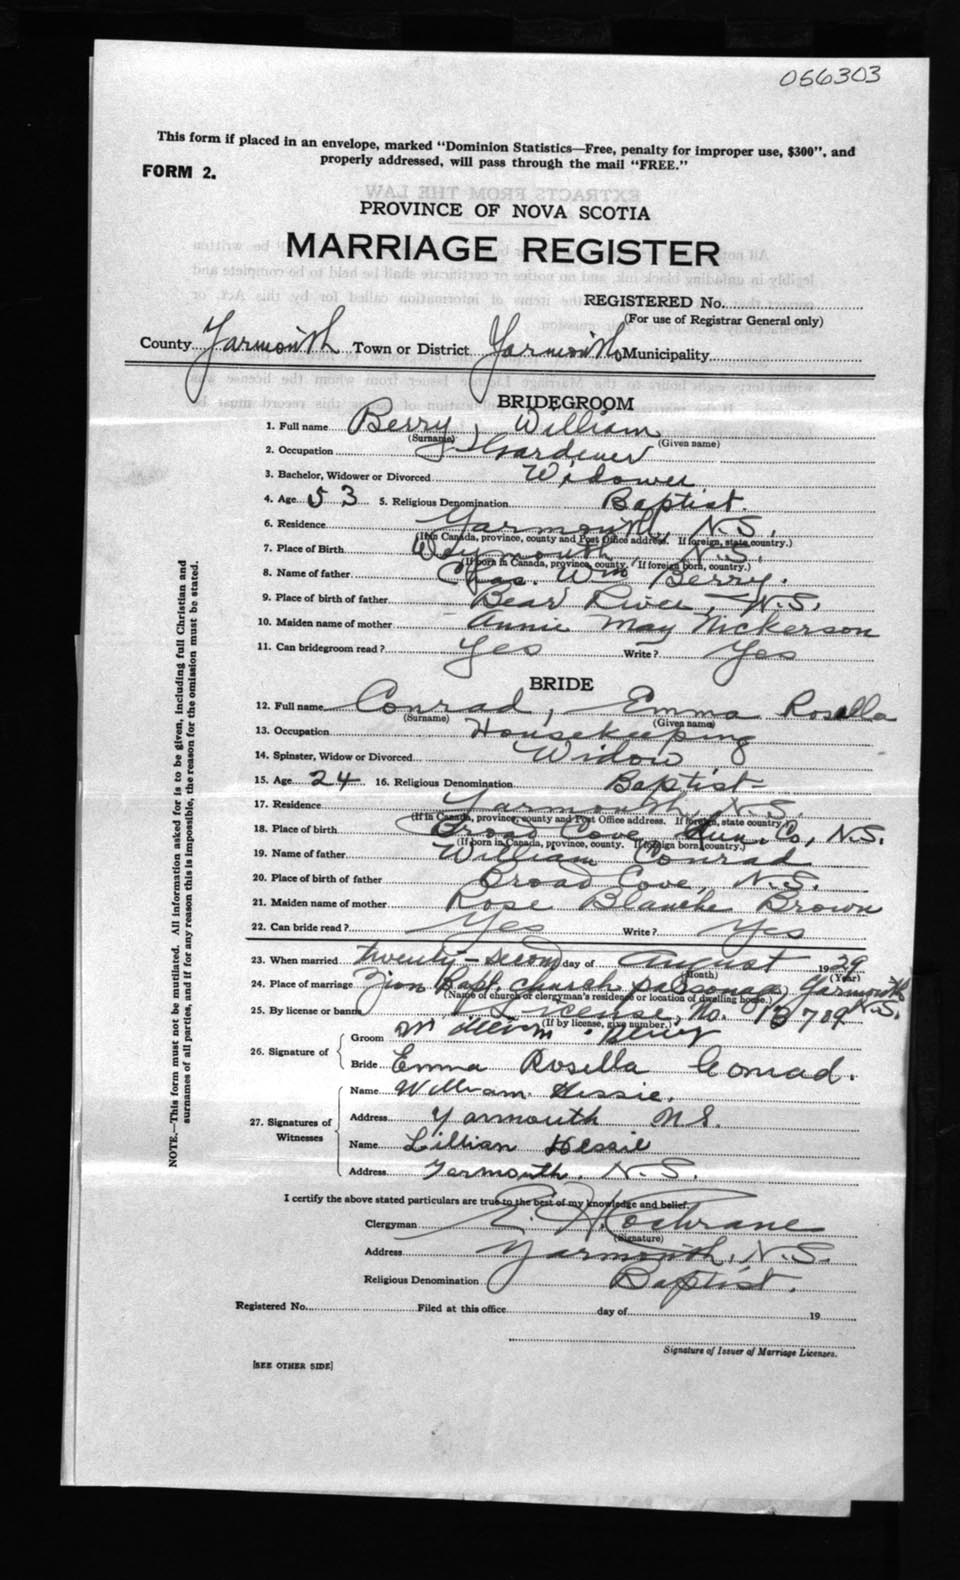 066303
This form if placed in an envelope, marked "Dominion Statistics—Free, penalty for improper use, $300", and
properly addressed, will pass through the mail "FREE."
FORM 2.
PROVINCE OF NOVA SCOTIA
MARRIAGE REGISTER
REGISTERED No.
(For use of Registrar General only)
County Yarmouth Town or District Yarmouth Municipality
BRIDEGROOM
1. Full name Berry, William
(Surname) (Given name)
2. Occupation Gardener
3. Bachelor, Widower or Divorced Widower
4. Age 53 5. Religious Denomination Baptist.
6. Residence Yarmouth, N.S.
(If in Canada, province, county and Post Office address. If foreign, state country.)
7. Place of Birth Weymouth, N.S.
(If born in Canada, province, county. If foreign born, country.)
8. Name of father Chas. Wm Berry.
9. Place of birth of father Bear River, N.S.
10. Maiden name of mother Annie May Nickerson
11. Can bridegroom read? Yes Write? Yes
BRIDE
12. Full name Conrad, Emma Rosella
(Surname) (Given name)
13. Occupation Housekeeping
14. Spinster, Widow or Divorced Widow
15. Age 24 16. Religious Denomination Baptist
17. Residence Yarmouth, N.S.
(If in Canada, province, county and Post Office address. If foreign, state country.)
18. Place of birth Broad Cove, Lun. Co, N.S.
(If born in Canada, province, county. If foreign born country.)
19. Name of father William Conrad
20. Place of birth of father Broad Cove, N.S.
21. Maiden name of mother Rose Blanche Brown
22. Can bride read? Yes Write? Yes
23. When married twenty-second day of August 1929
(Month) (Year)
24. Place of marriage Zion Bapt. church parsonage, Yarmouth N.S.
(Name of church or clergyman's residence or location of dwelling house.)
25. By license or banns License, No. 13709
(If by license, give number.)
26. Signature of Groom William Berry
Bride Emma Rosella Conrad.
27. Signatures of Witnesses
Name William Hessie.
Address Yarmouth N.S.
Name Lillian Hessie
Address Yarmouth. N.S.
I certify the above stated particulars are true to the best of my knowledge and belief.
Clergyman E. H. Cochrane
(Signature)
Address Yarmouth, N.S.
Religious Denomination Baptist.
Registered No. Filed at this office day of 19
Signature of Issuer of Marriage Licenses.
[SEE OTHER SIDE]
NOTE.—This form must not be mutilated. All information asked for is to be given, including full Christian and
surnames of all parties, and if for any reason this is impossible, the reason for the omission must be stated.